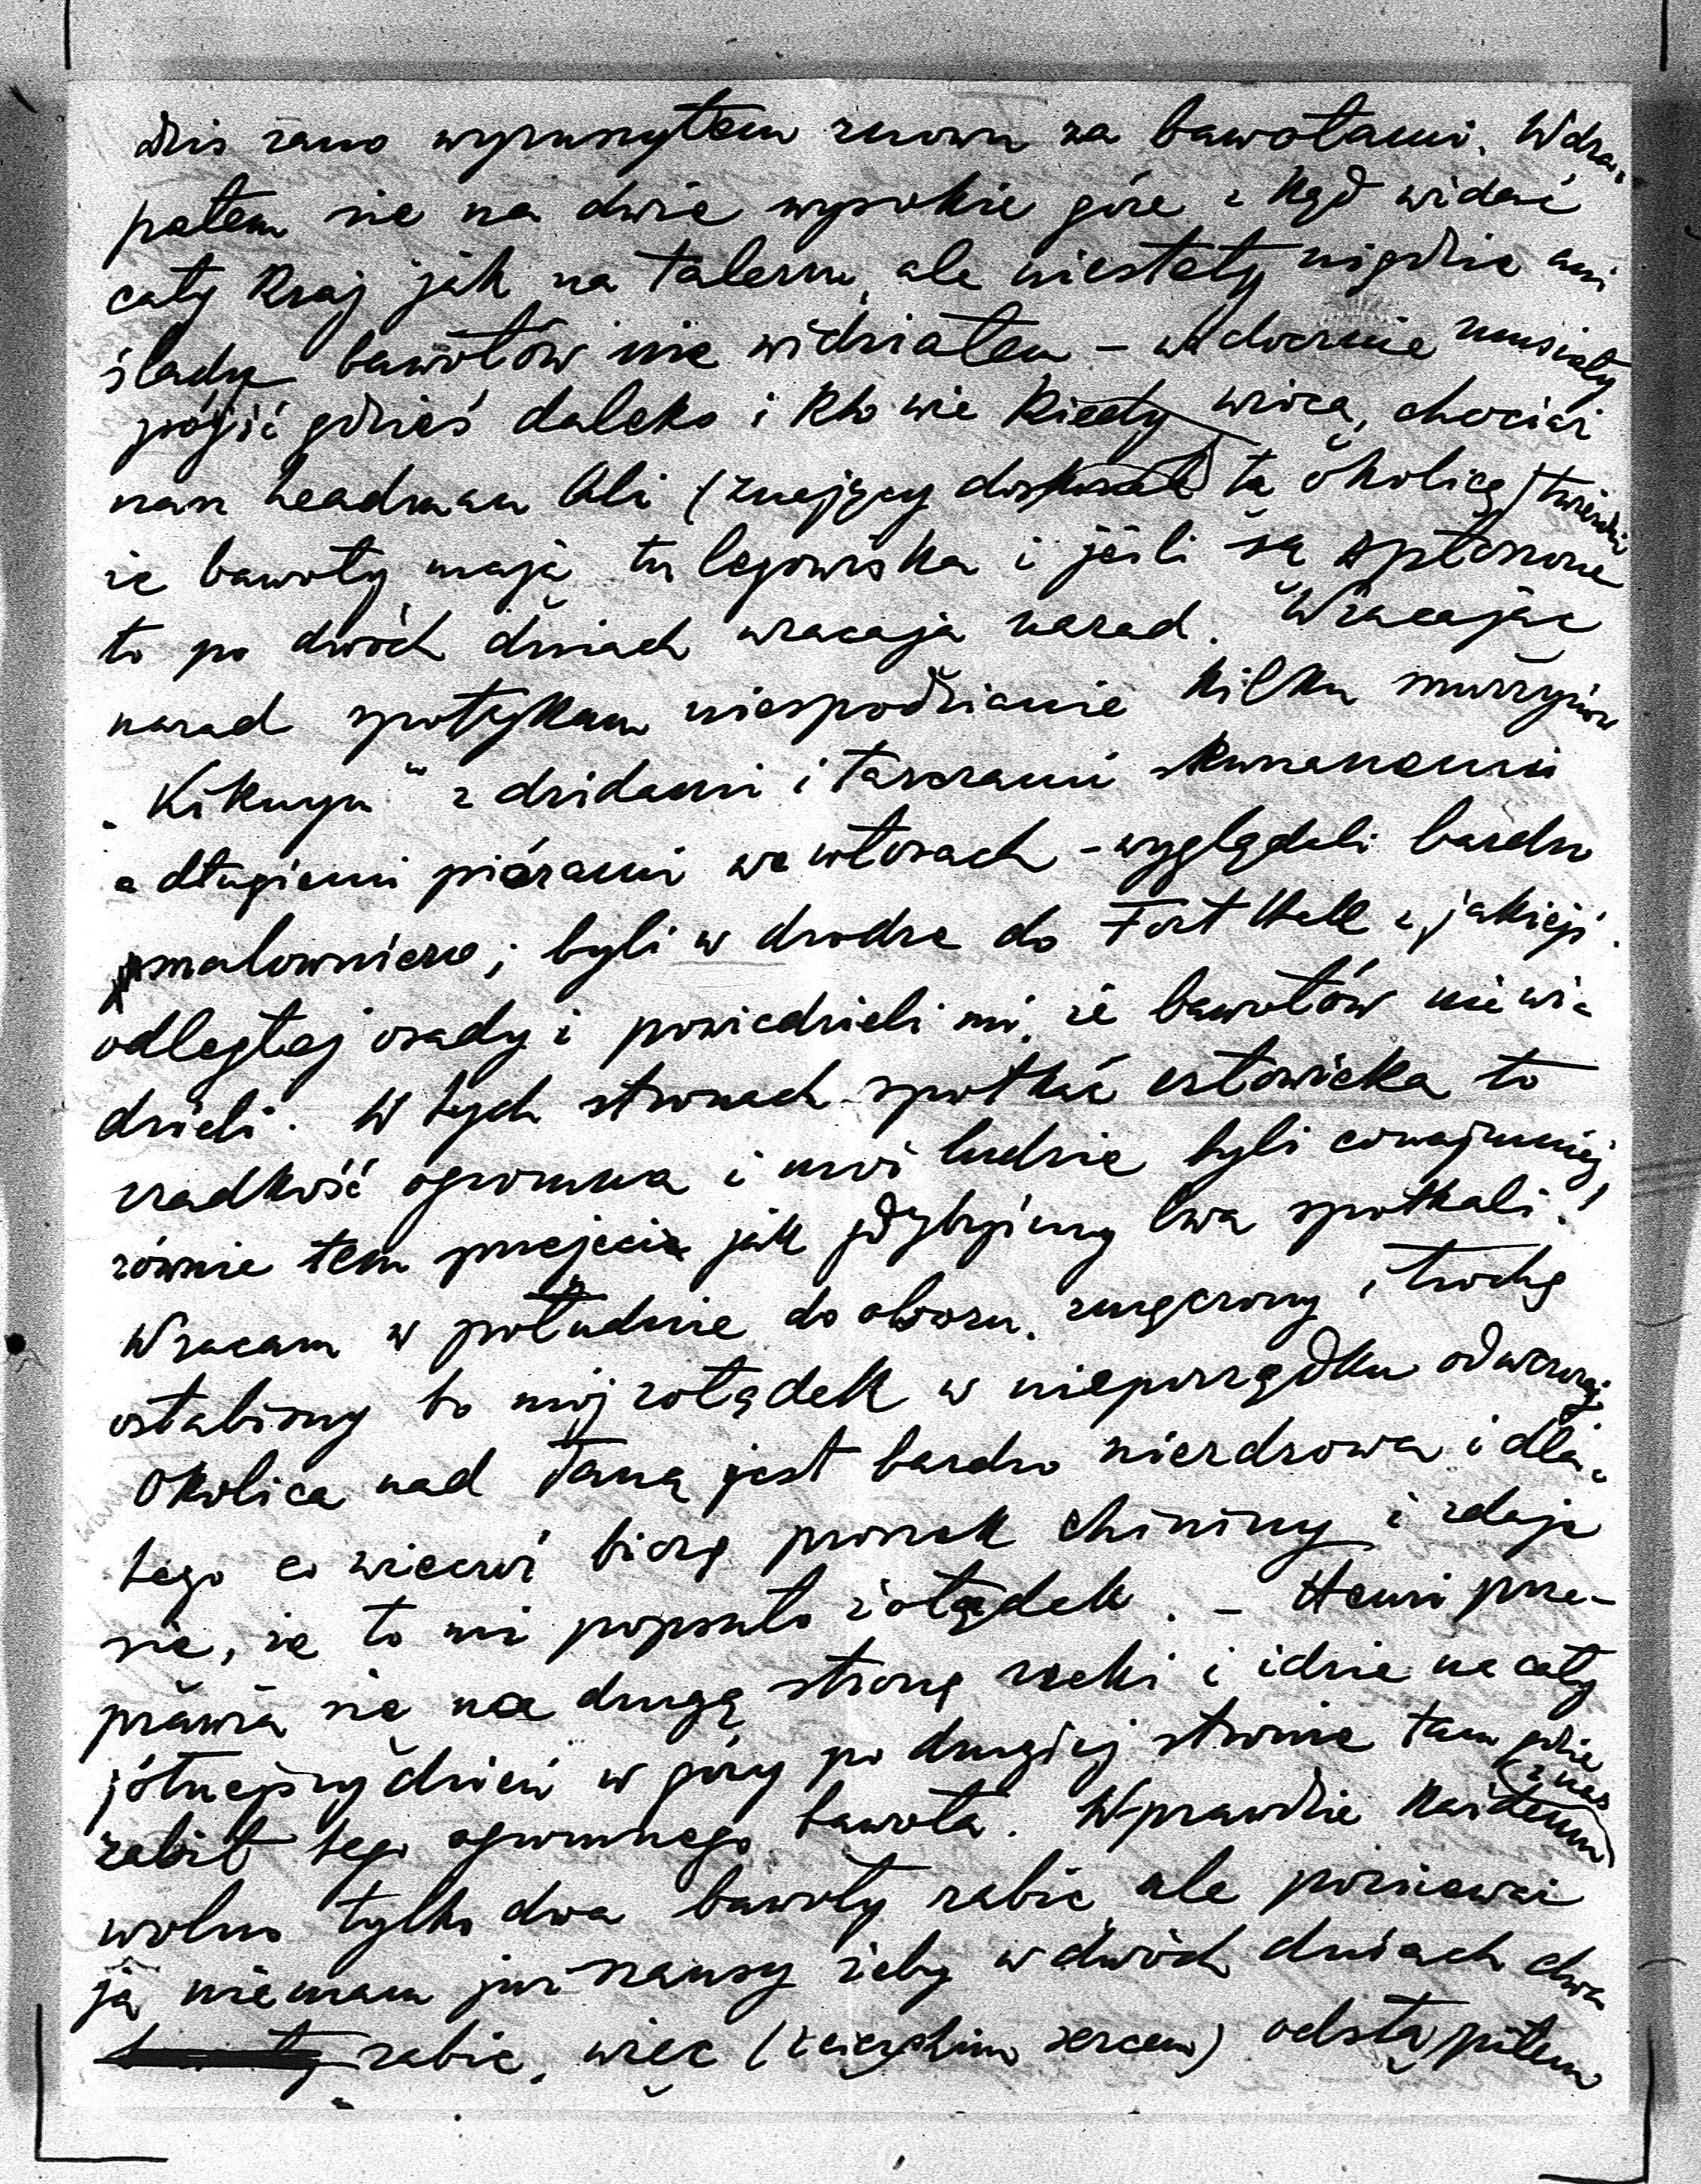 dziś rano wyruszyłem znowu za bawołami. Wdra-
pałem się na dwie wysokie góre z kąd widać
cały kraj jak na talerzu, ale niestety nigdzie ani
ślady bawołów nie widziałem – widocznie musiały
pójść gdzieś daleko i kto wie kiedy wrócą, chociaż
nasz headman Ali (znający doskonale tą okolicę) twierdzi
że bawoły mają tu legowiska i jeśli są spłoszone
to po dwóch dniach wracają nazad. Wracając
nazad spotykam niespodzianie kilku murzynów
„Kikuyu" z dzidami i tarczami skurzanemi
a długiemi piórami we włosach – wyglądali bardzo
malowniczo; byli w drodze do Fort Hall z jakiejś
odległej osady i powiedzieli mi, że bawołów nie wi-
dzieli. W tych stronach spotkać człowieka to
rzadkość ogromna i moi ludzie byli conajmniej
równie tem przejęci jak gdybyśmy lwa spotkali!
Wracam w południe do obozu, zmęczony i trochę
osłabiony bo mój żołądek w nieporządku od wczoraj.
Okolica nad Taną jest bardzo niezdrowa i dla-
tego co wieczór biorę proszek chininy i zdaje
się, że to mi popsuło żołądek. – Henri prze-
prawia się na drugą stronę rzeki i idzie na cały
jótrzejszy dzień w góry po drugiej stronie tam gdzie
zabił tego ogromnego bawoła. Wprawdzie każdemu
z nas
wolno tylko dwa bawoły zabić, ale ponieważ
ja niemam już szansy żeby w dwóch dniach dwa
zabić, więc (z ciężkim sercem) odstąpiłem